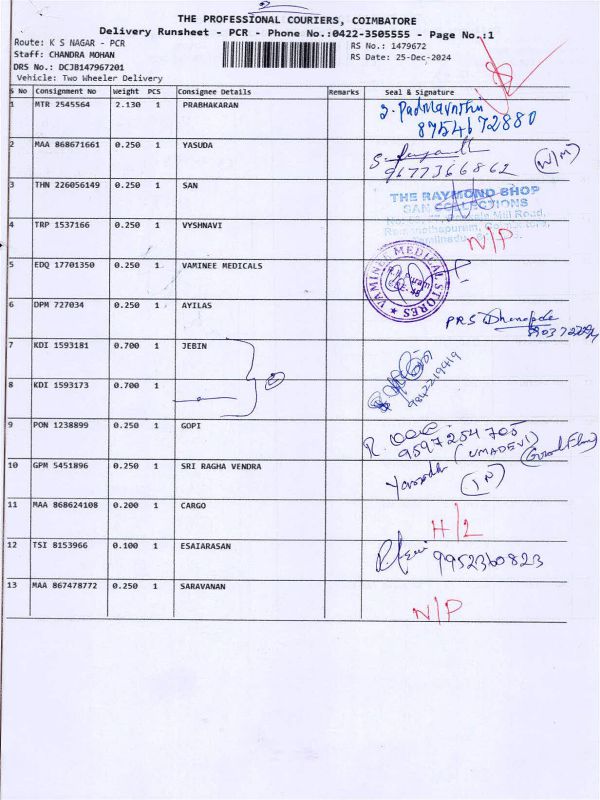 THE PROFESSIONAL COURIERS, COIMBATORE
Delivery Runsheet - PCR - Phone No.:0422-3505555 - Page No.:1
Route: K S NAGAR - PCR
RS No.: 1479672
Staff: CHANDRA MOHAN
RS Date: 25-Dec-2024
DRS No.: DCJB147967201
Vehicle: Two Wheeler Delivery
S No Consignment No Weight PCS Consignee Details Remarks Seal & Signature
1 MTR 2545564 2.130 1 PRABHAKARAN
8754672880
2 MAA 868671661 0.250 1 YASUDA
9677366862 (W/M)
3 THN 226056149 0.250 1 SAN
THE RAYMOND SHOP
SAN COLLECTIONS
Mill Road,
4 TRP 1537166 0.250 1 VYSHNAVI
N/P
5 EDQ 17701350 0.250 1 VAMINEE MEDICALS
VAMINEE MEDICAL STORES
6 DPM 727034 0.250 1 AYILAS
PRS
7 KDI 1593181 0.700 1 JEBIN
2
8 KDI 1593173 0.700 1
9842219419
9 PON 1238899 0.250 1 GOPI
9597254705
(UMADEVI)
10 GPM 5451896 0.250 1 SRI RAGHA VENDRA
11 MAA 868624108 0.200 1 CARGO
H/2
12 TSI 8153966 0.100 1 ESAIARASAN
9952360823
13 MAA 867478772 0.250 1 SARAVANAN
N/P